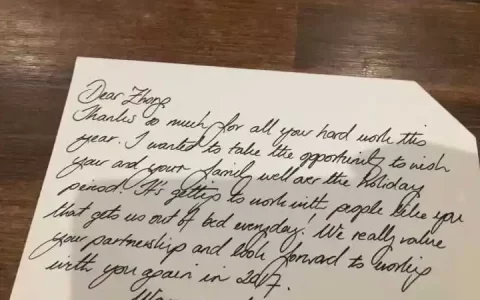 Dear Zhong
Thanks so much for all your hard work this
year. I wanted to take the opportunity to wish
your and your family well over the holiday
period. It's getting to work with people like you
that gets us out of bed everyday. We really value
your partnership and look forward to working
with you again in 2017.